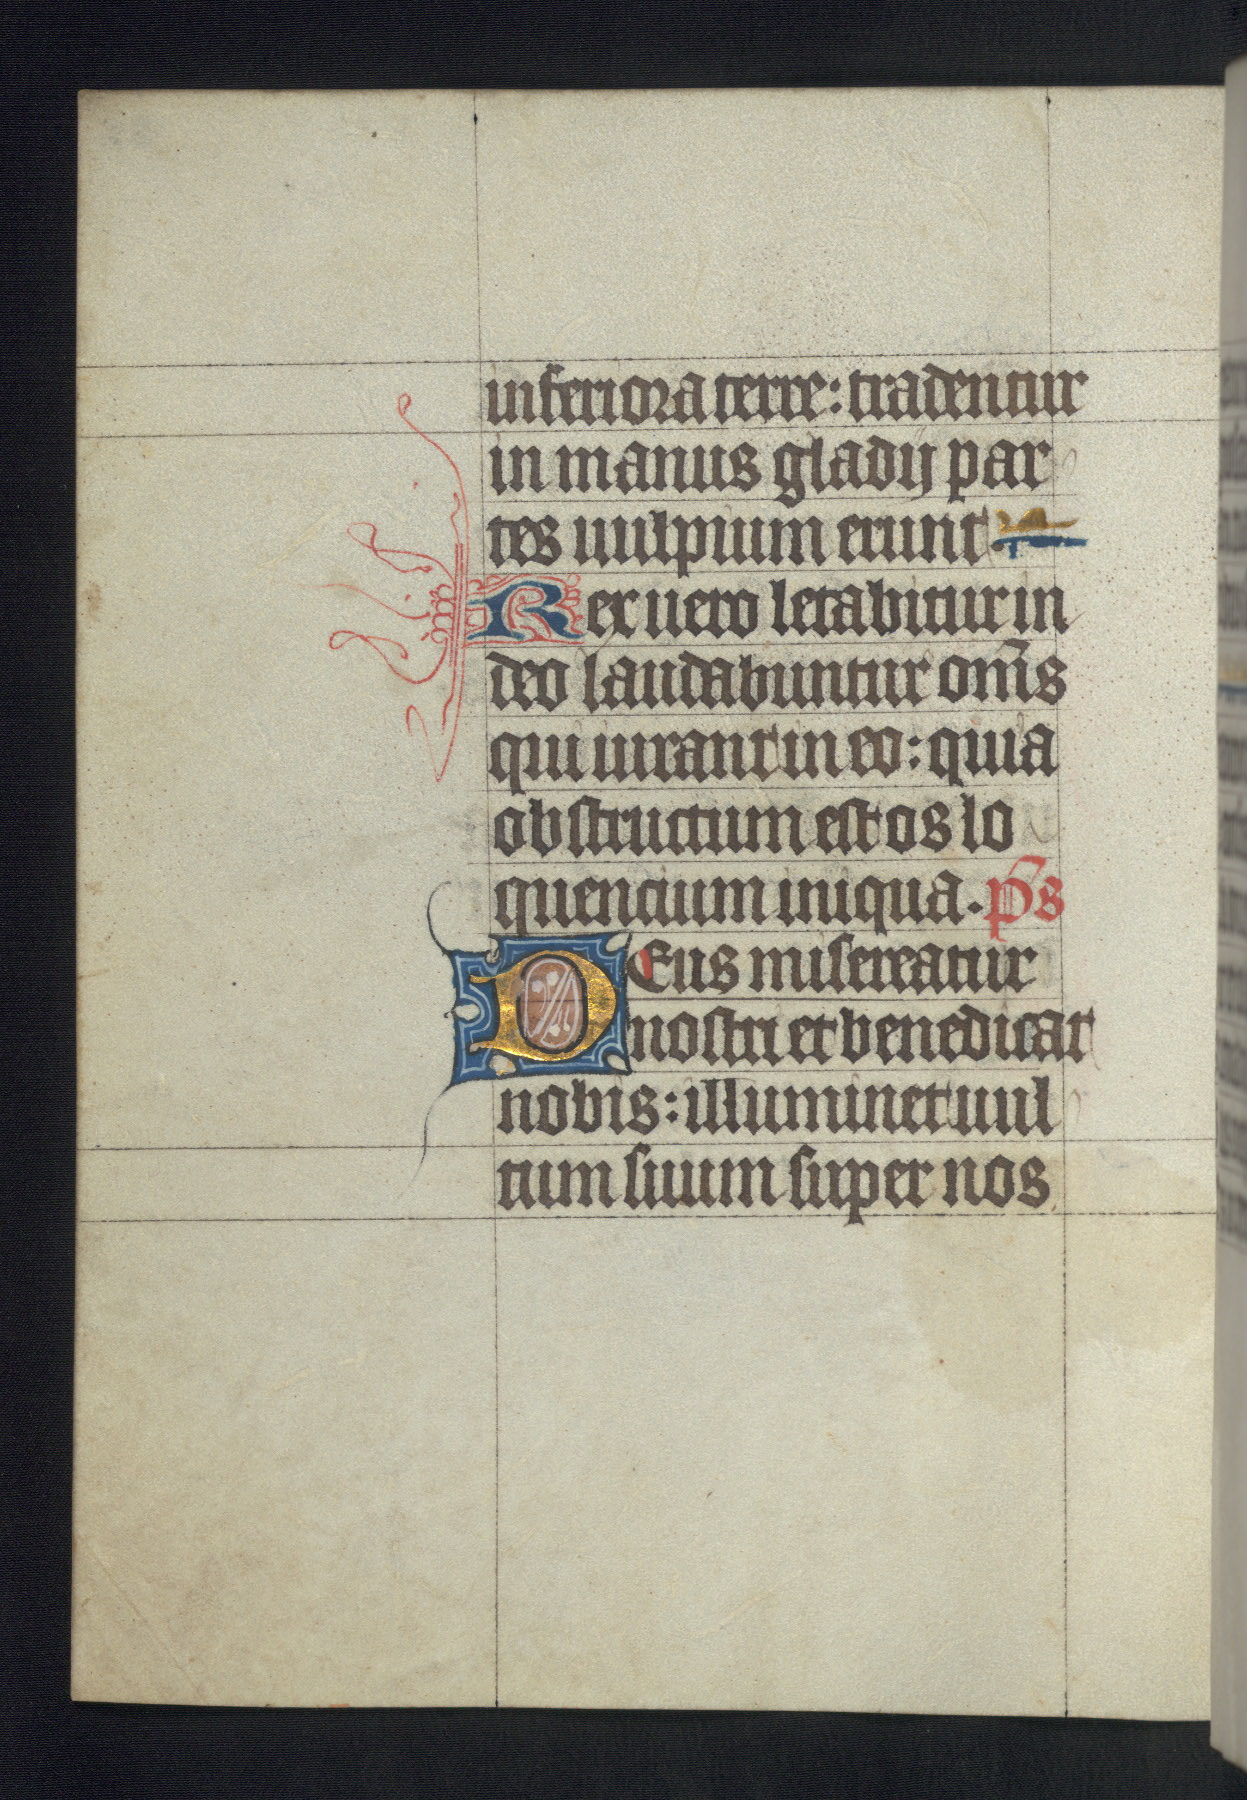 inferiora terre: tradentur
in manus gladij par
tes uulpium erunt.
Rex uero letabitur in
deo laudabuntur om̅s
qui iurant in eo: quia
obstructum est os lo
quencium iniqua. p̅s
DEus misereatur
nostri et benedicat
nobis: illuminet uul
tum suum super nos